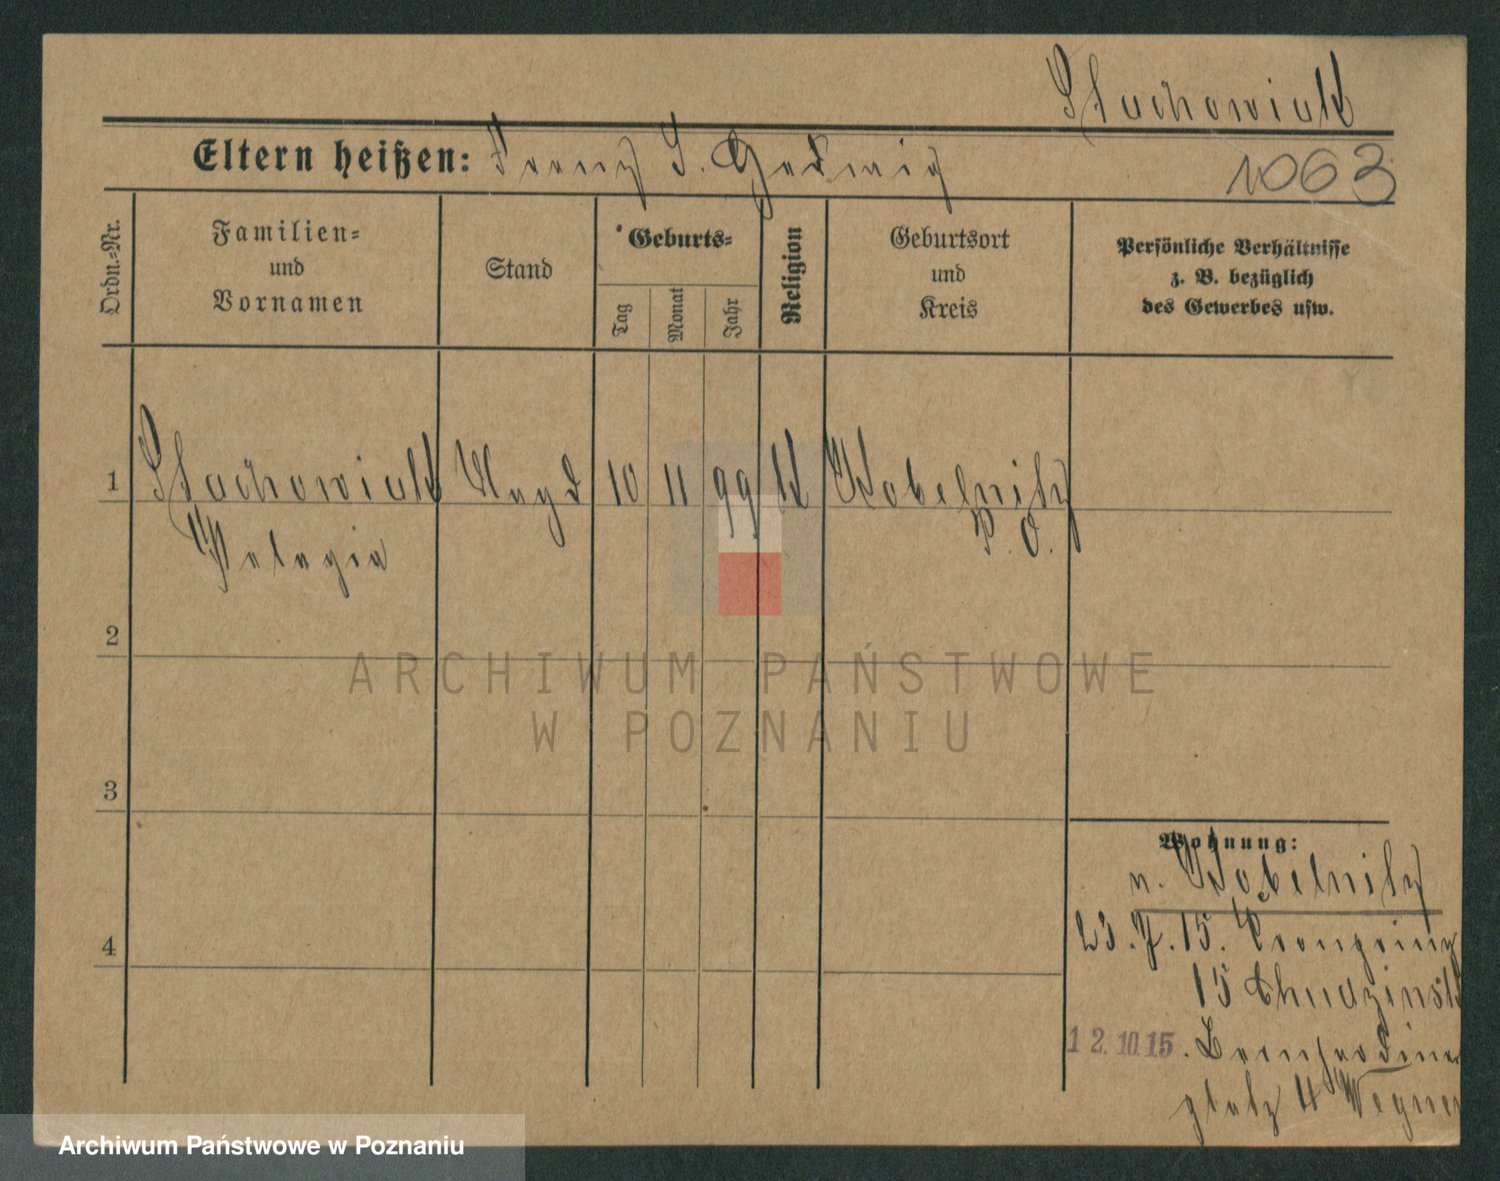 Stachowiak
Eltern heißen: Franz S. Hedwig
1063
Ordn.-Nr.
Familien-
und
Vornamen
Stand
Geburts-
Tag
Monat
Jahr
Religion
Geburtsort
und
Kreis
Persönliche Verhältnisse
z. B. bezüglich
des Gewerbes usw.
1 Stachowiak Magd 10 11 99 k Kobelnitz
P. O.
Pelagia
2
ARCHIWUM PAŃSTWOWE
W POZNANIU
3
Wohnung:
n. Kobelnitz
23.7.15. Kronprinz
15 Chudzinsk
12.10.15. Bernhardiner
platz 4 Wegner
4
Archiwum Państwowe w Poznaniu